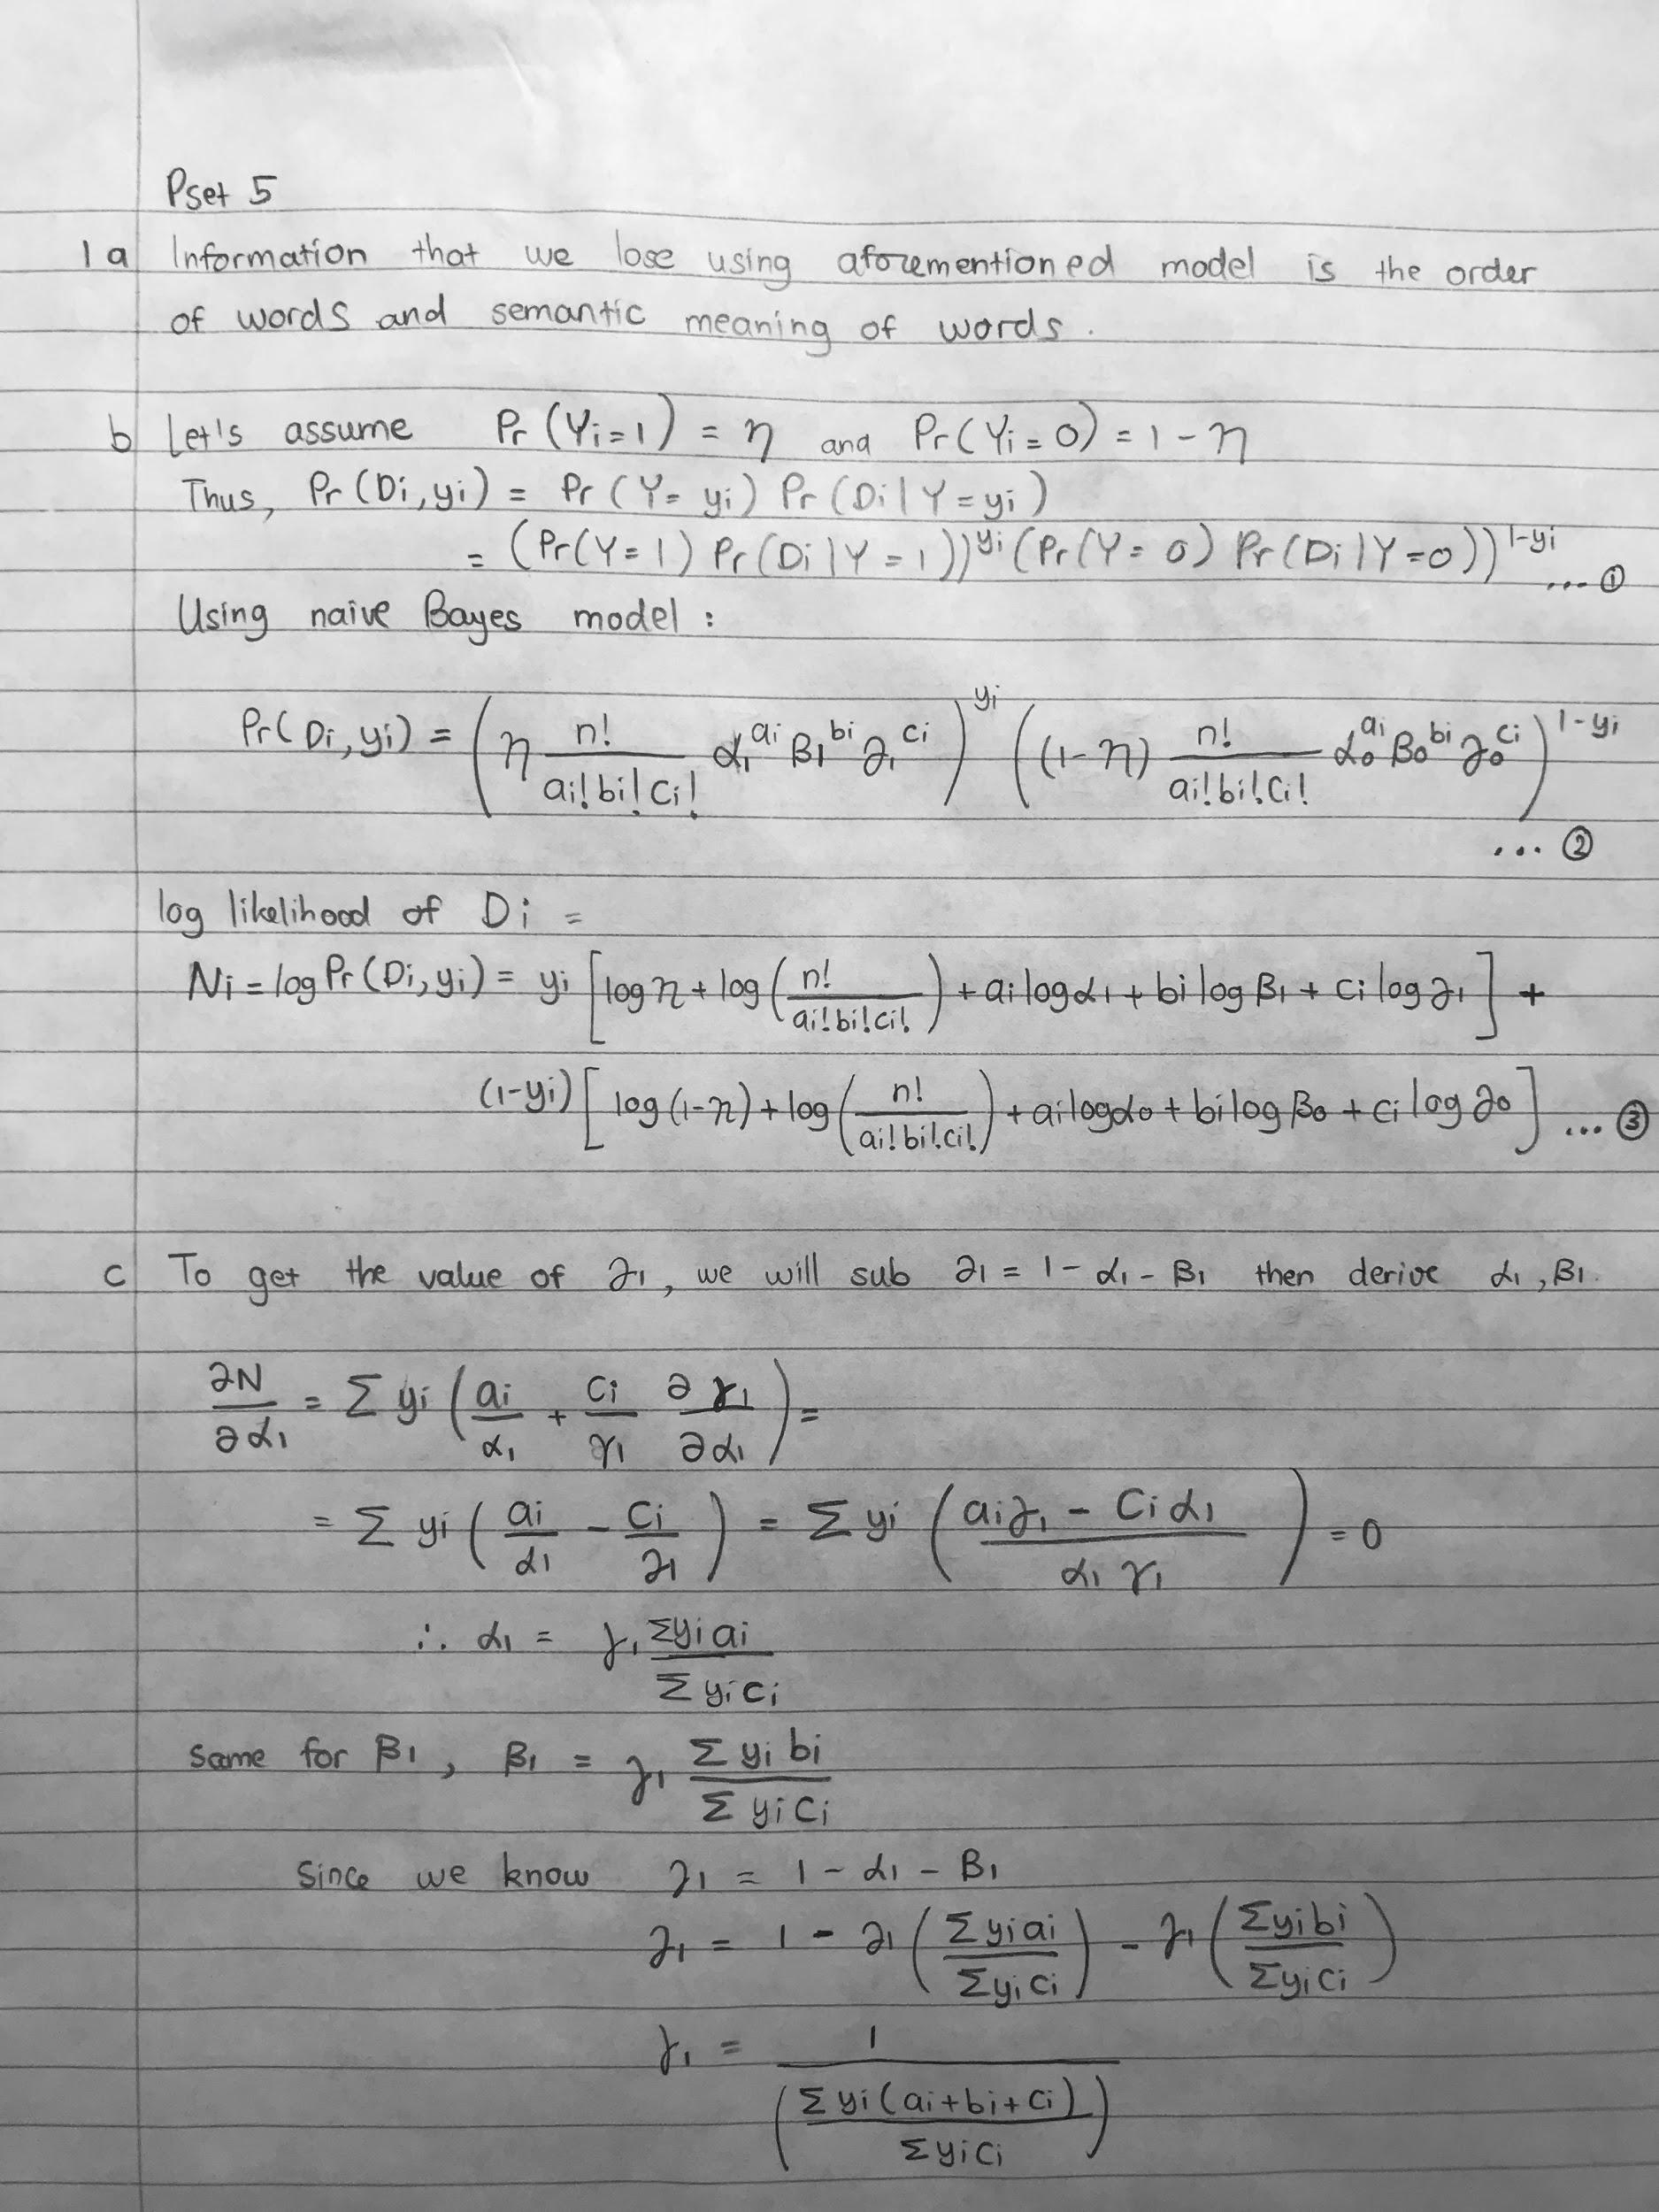 Pset 5
1a Information that we lose using aforementioned model is the order
of words and semantic meaning of words.
b Let's assume Pr(Yi=1) = η and Pr(Yi=0) = 1-η
Thus, Pr(Di,yi) = Pr(Y=yi) Pr(Di|Y=yi)
= (Pr(Y=1) Pr(Di|Y=1))^yi (Pr(Y=0) Pr(Di|Y=0))^1-yi ...①
Using naive Bayes model:
Pr(Di,yi) = (η n!/(ai!bi!ci!) α1^ai β1^bi γ1^ci)^yi ((1-η) n!/(ai!bi!ci!) α0^ai β0^bi γ0^ci)^1-yi
... ②
log likelihood of Di =
Ni = log Pr(Di,yi) = yi [log η + log(n!/(ai!bi!ci!)) + ai log α1 + bi log β1 + ci log γ1] +
(1-yi) [log(1-η) + log(n!/(ai!bi!ci!)) + ai log α0 + bi log β0 + ci log γ0] ... ③
c To get the value of γ1, we will sub γ1 = 1 - α1 - β1 then derive α1, β1.
∂N/∂α1 = Σ yi (ai/α1 + ci/γ1 ∂γ1/∂α1) =
= Σ yi (ai/α1 - ci/γ1) = Σ yi ((aiγ1 - ciα1)/(α1γ1)) = 0
∴ α1 = γ1 Σyiai/Σyici
same for β1, β1 = γ1 Σyibi/Σyici
Since we know γ1 = 1 - α1 - β1
γ1 = 1 - γ1 (Σyiai/Σyici) - γ1 (Σyibi/Σyici)
γ1 = 1/(Σyi(ai+bi+ci)/Σyici)